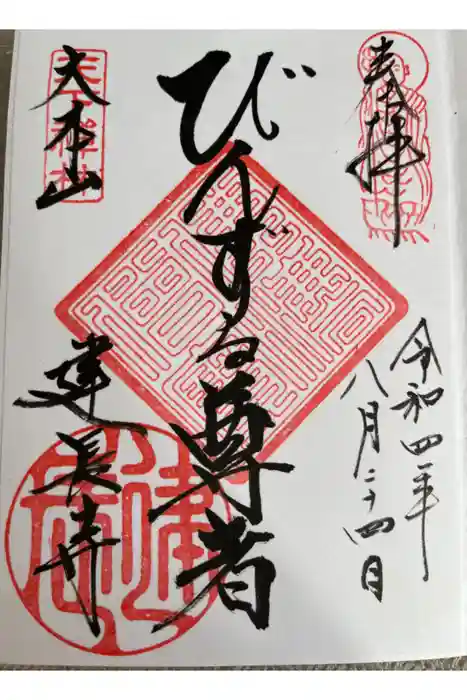 奉拝
令和四年
八月二十四日
びんずる尊者
大本山
建長寺
天下禅林